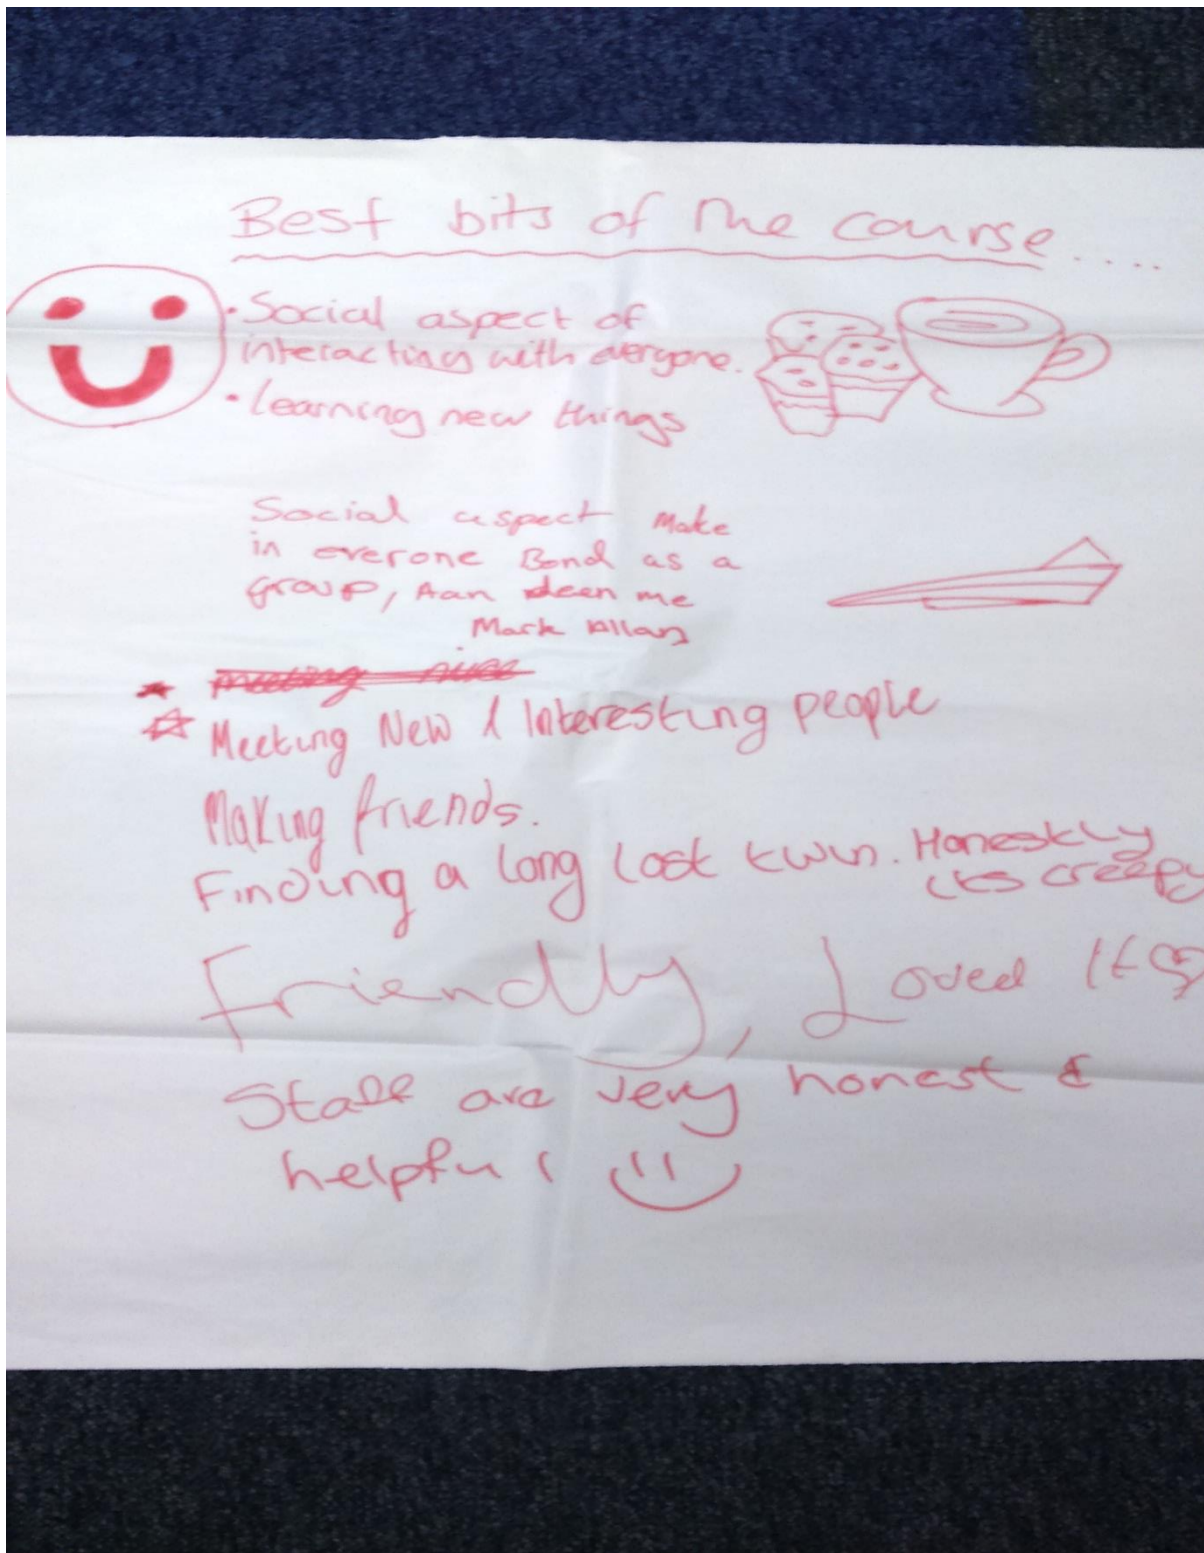 Best bits of the course.....
• Social aspect of
interacting with everyone.
• Learning new things
Social aspect Make
in everone Bond as a
group, Aan deen me
Mark Allan
meeting nice
Meeting New & Interesting people
Making friends.
Finding a long lost twin. Honestly
its creepy
Friendly, Loved It
Staff are very honest &
helpful